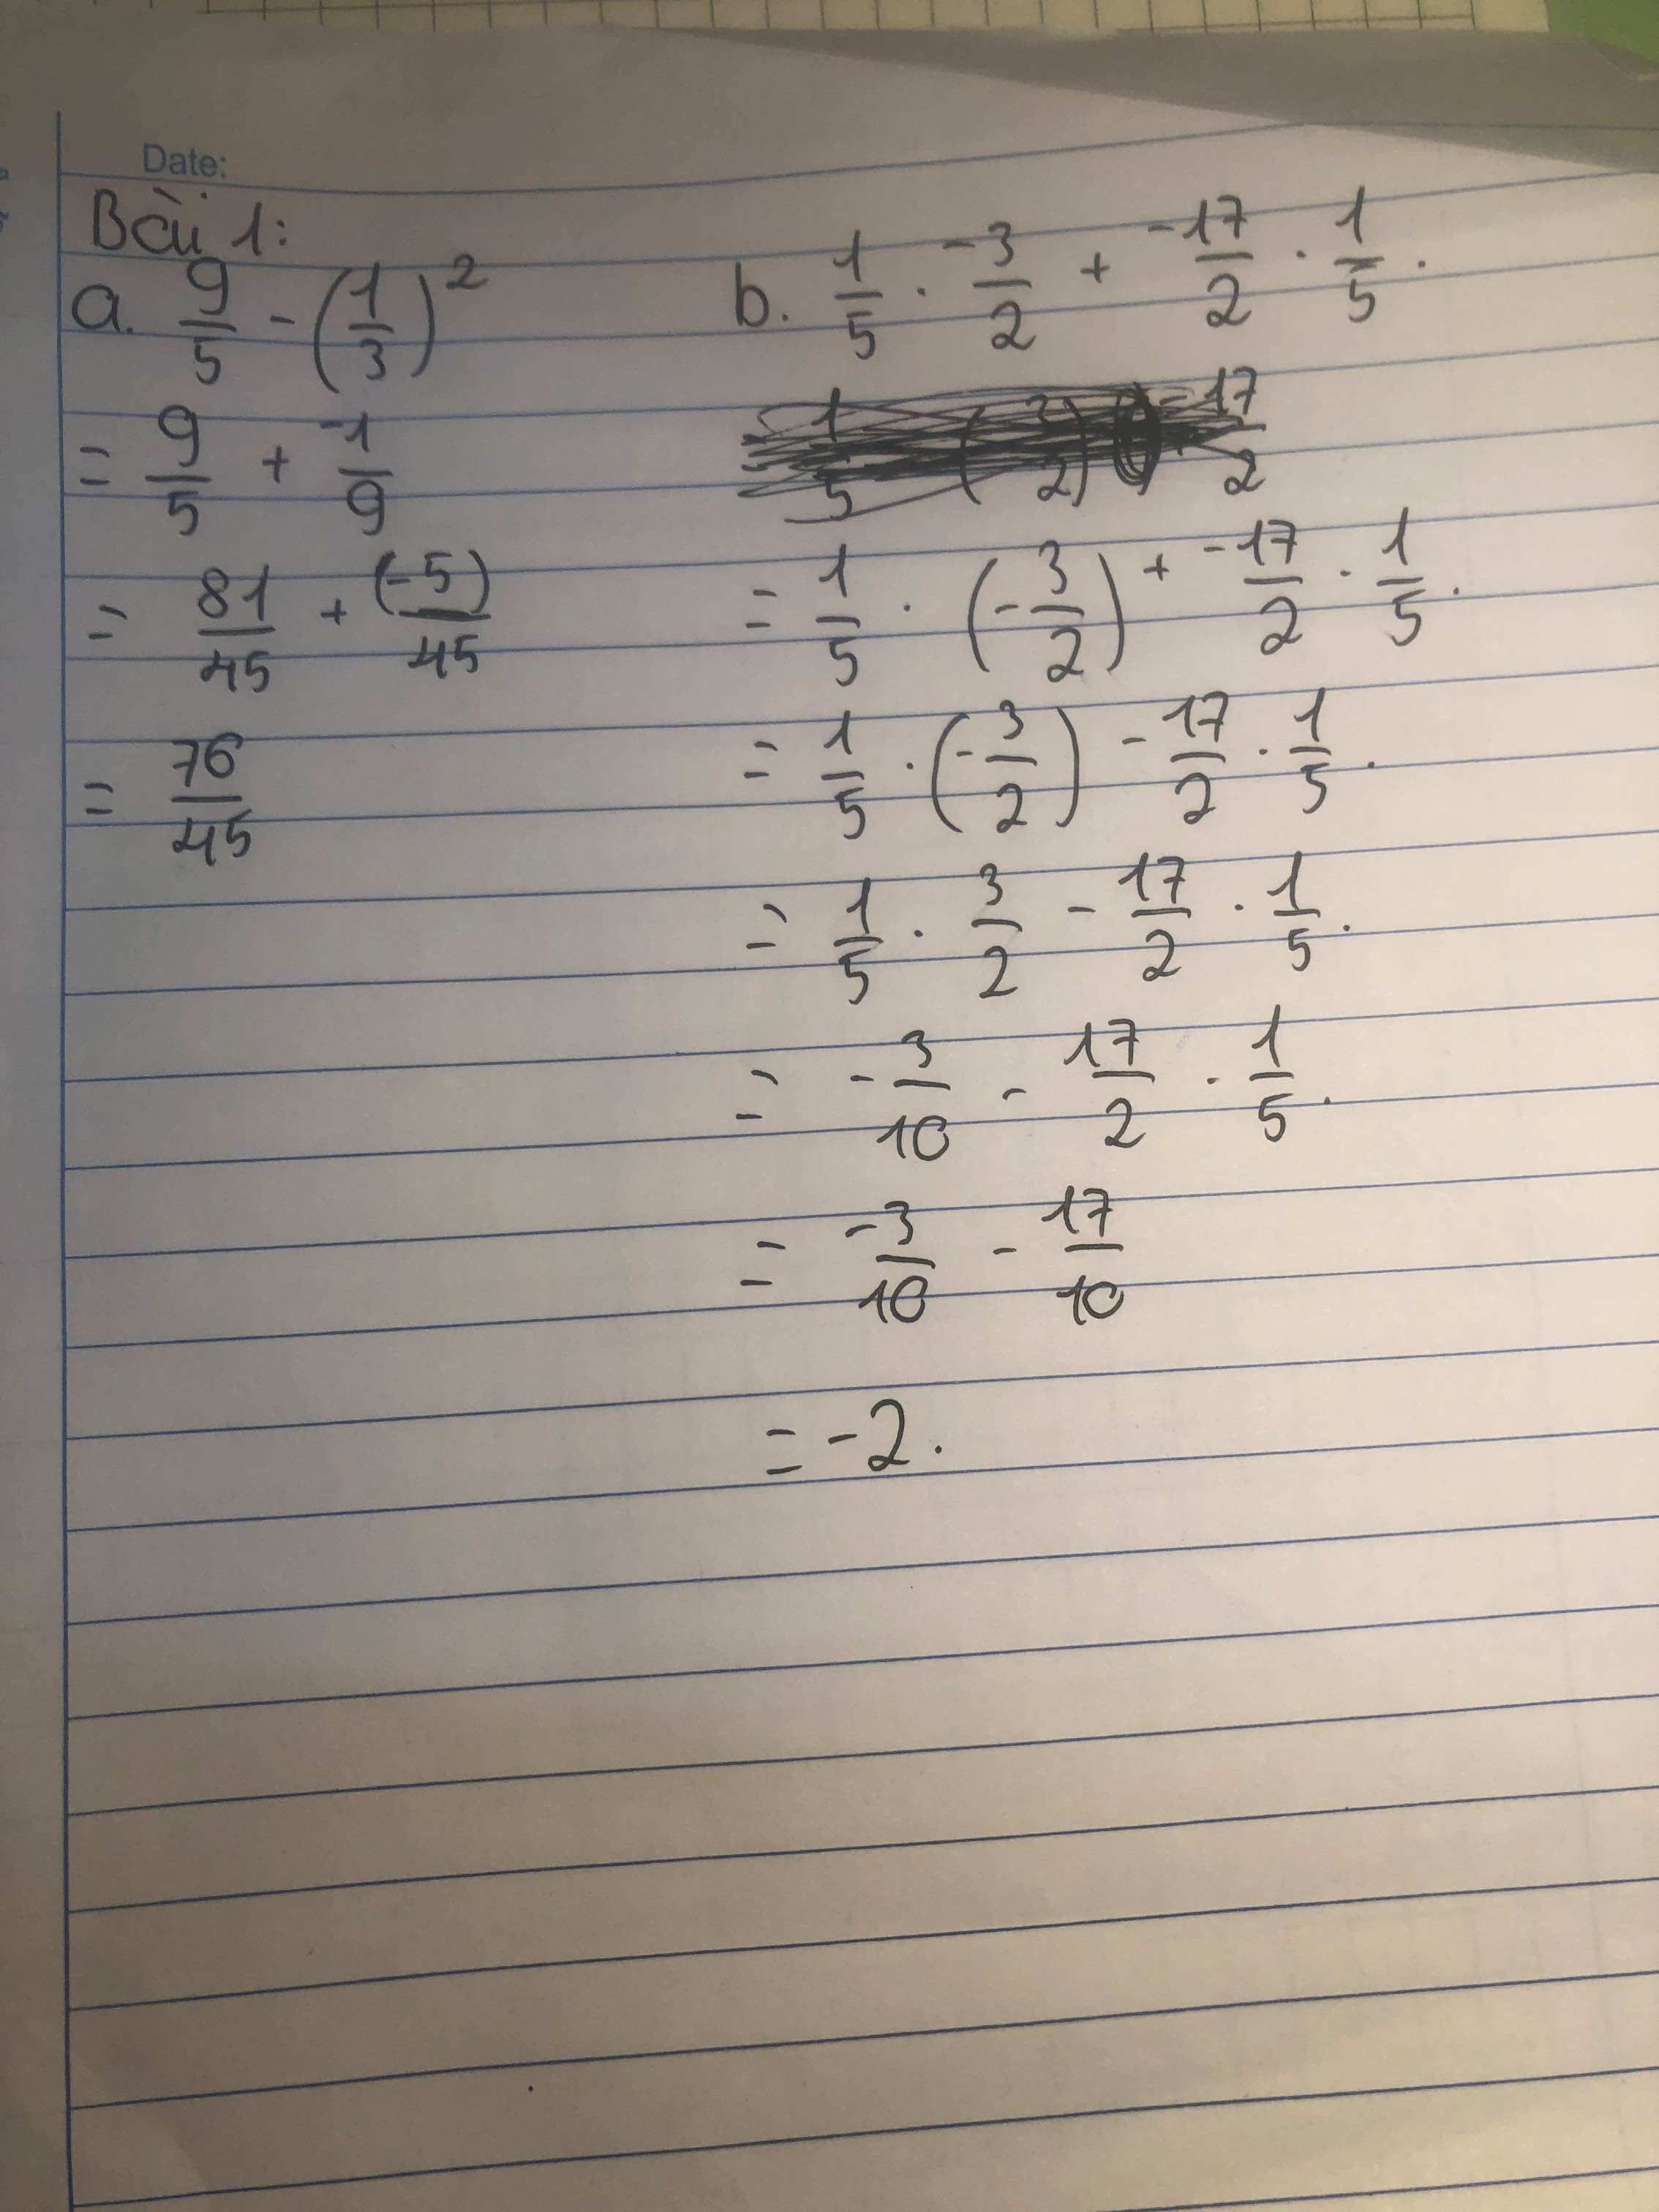 Date:
Bài 1:
a. 9/5 - (1/3)^2
= 9/5 + -1/9
= 81/45 + (-5)/45
= 76/45
b. 1/5 . -3/2 + -17/2 . 1/5 .
= 1/5 . (-3/2) + -17/2 . 1/5 .
= 1/5 . (-3/2) - 17/2 . 1/5 .
= 1/5 . 3/2 - 17/2 . 1/5 .
= -3/10 - 17/2 . 1/5 .
= -3/10 - 17/10
= -2 .